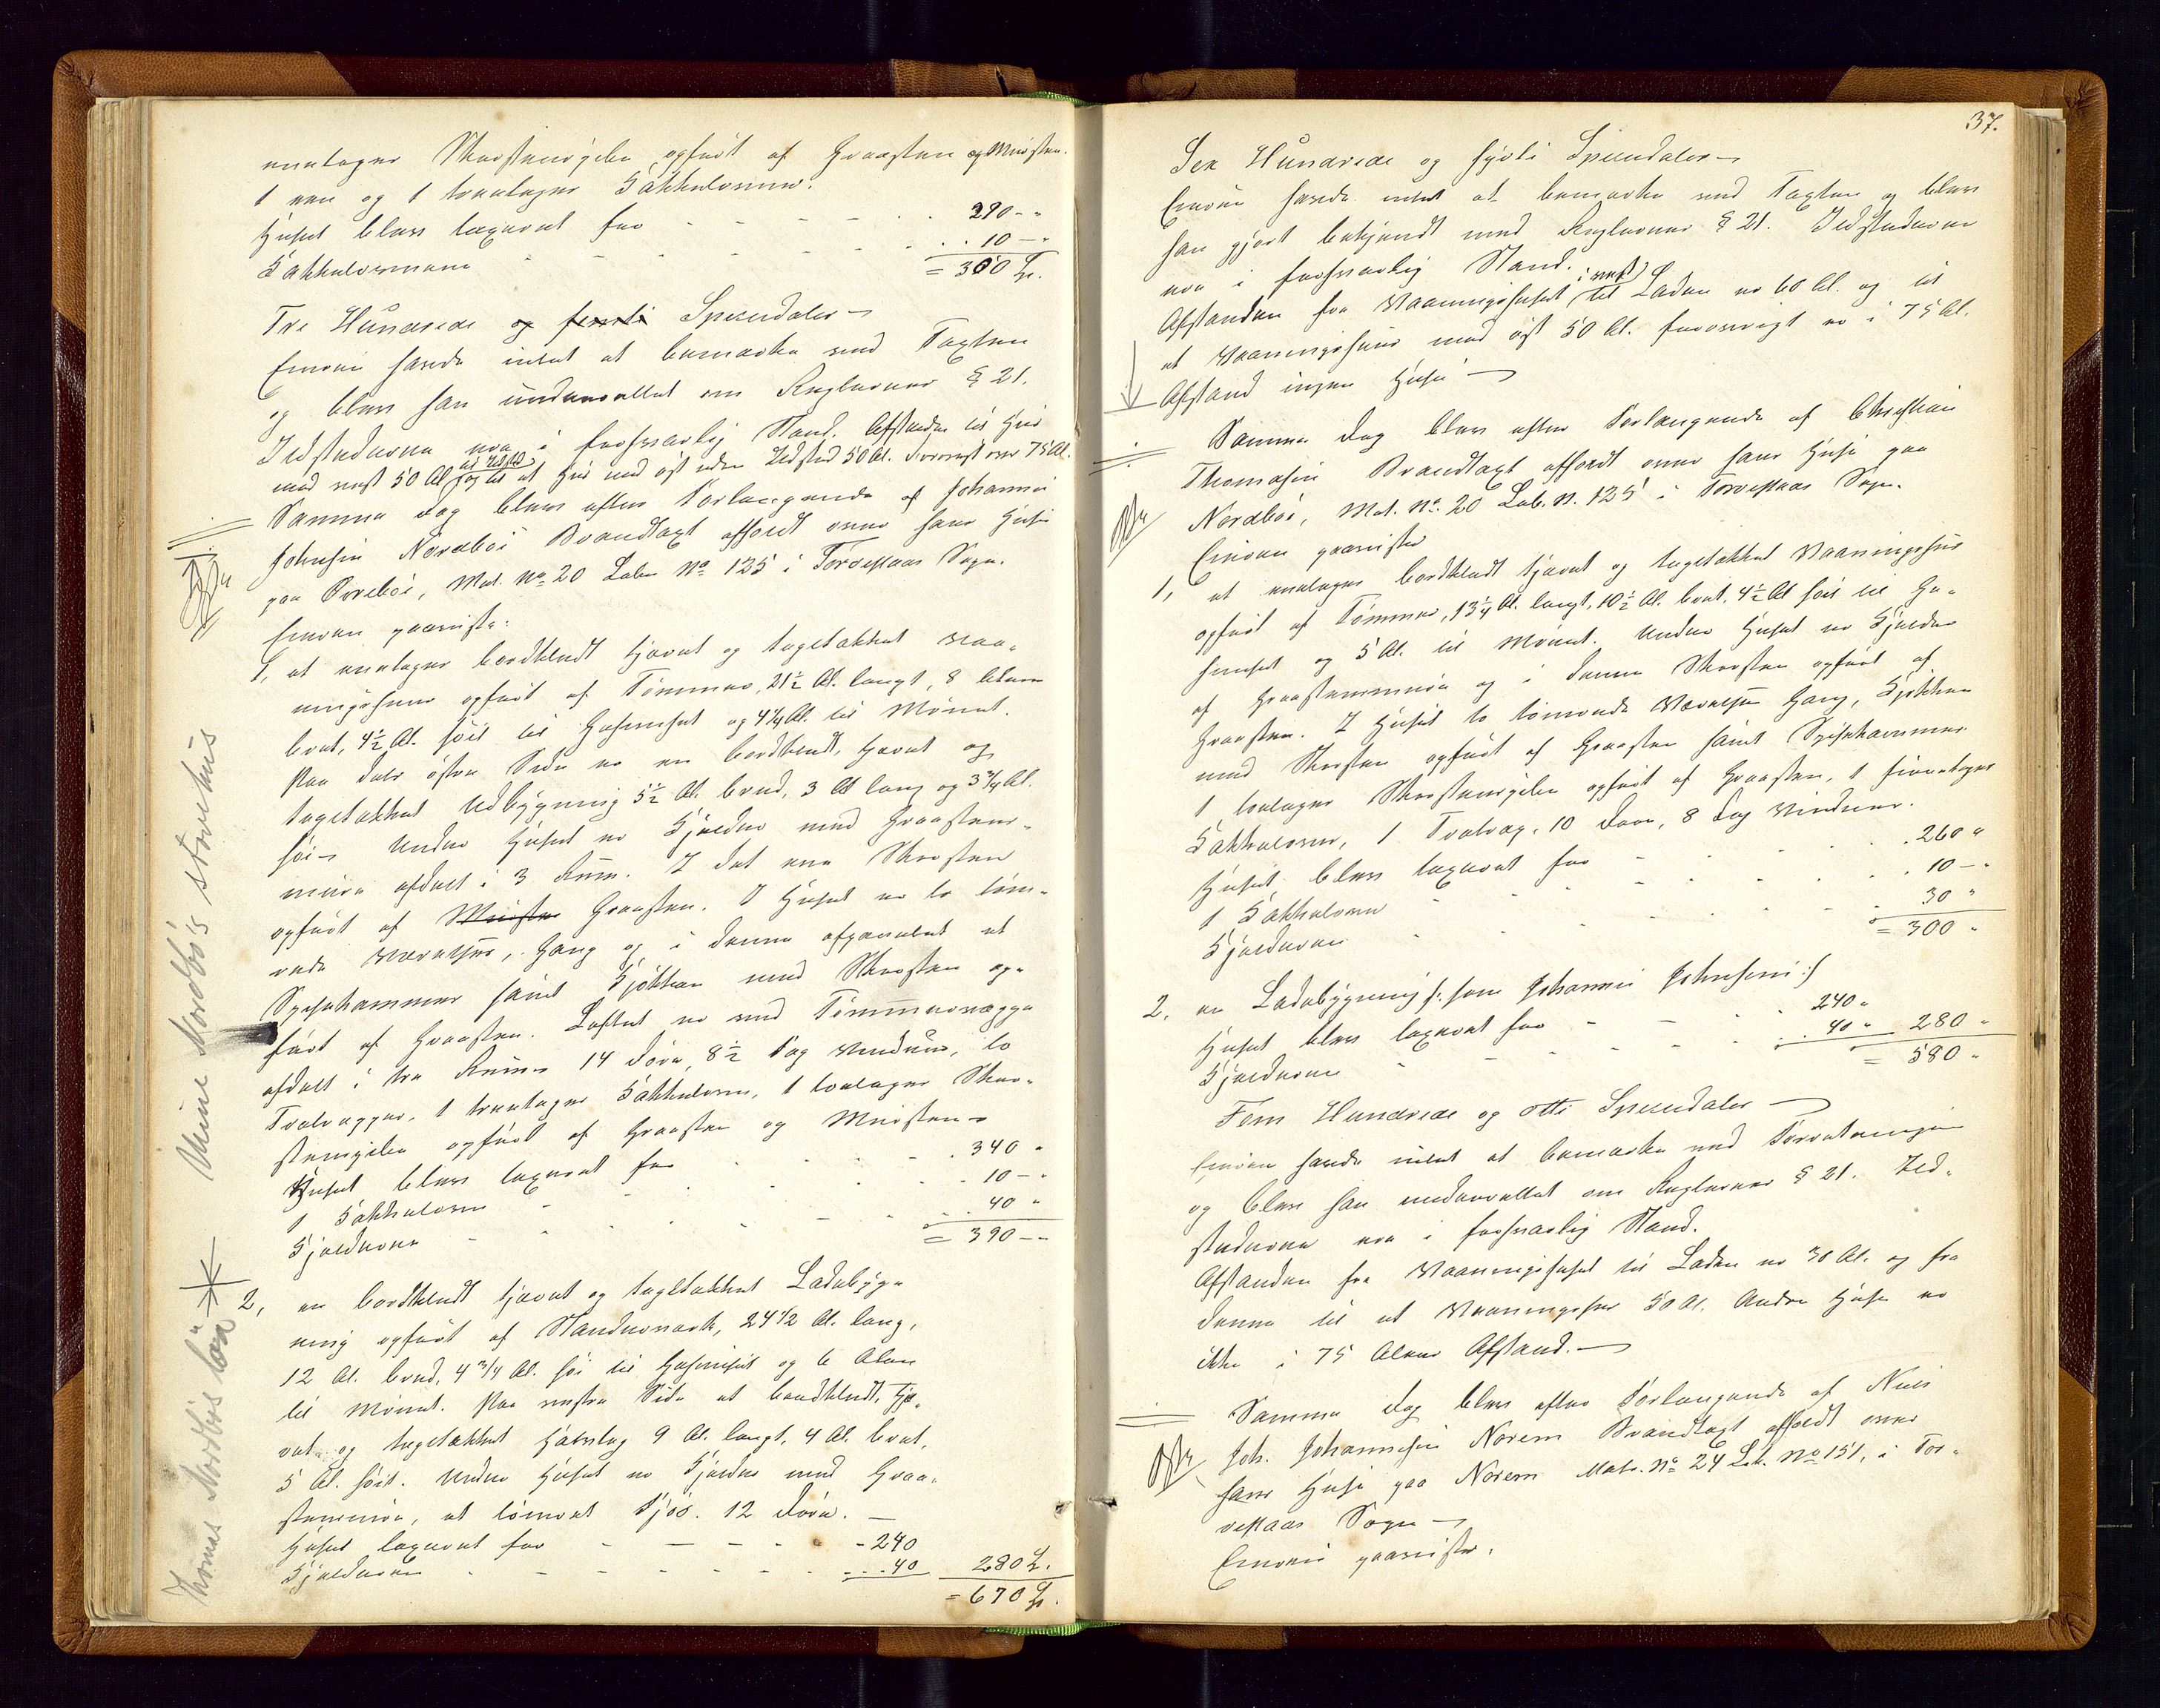 enetages Skorstenspibe opført af Graasten og Mursten.
1 een og 1 treetages Kakkelovne.
Huset blev taxeret for - - - 290 - "
Kakkelovnene - - - 10 - "
= 300 Sp.
Tre Hundrede og femti Speciedaler
Eieren havde intet at bemærke ved Taxten
og blev han underrettet om Reglernes § 21.
Ildstederne var i forsvarlig Stand. Afstanden til Huus
mod vest 50 Al. og til et Huus mod øst uden Ildsted 50 Al.
Samme Dag blev efter Forlangende af Johannes
Johnsen Nordbøe Brandtaxt afholdt over hans Huse
paa Nordbøe, Mat. No 20 Løbe No 125 i Torvestad Sogn.
Eieren paaviste:
1, et enetages bordklædt tjæret og tagstakket Vaa-
ningshuus opført af Tømmer, 21½ Al. langt, 8 Alen
bredt, 4½ Al. høit til Gesimset og 4¼ Al. til Mønet.
Paa dets østre Side er en bordklædt, tjæret og
tagstakket Udbygning 5½ Al. bred, 3 Al lang og 3¾ Al.
høi - Under Huset er Kjelder med Graasteens-
mure afdelt i 3 Rum. I det ene Skorsten
opført af Mursten Graasten. I Huset er to tøm-
rede Værelser, Gang og i denne afpanelet et
Spisekammer samt Kjøkken med Skorsten op-
ført af Graasten. Loftet er med Tømmervægge
afdelt i tre Rum - 14 Døre, 8½ Fag Vinduer, to
Fralægger, 1 treetages Kakkelovn, 1 toetages Skor-
stenspibe opført af Graasten og Mursten -
Huset blev taxeret for - - - 340 "
1 Kakkelovn - - - 10 - "
Kjelderen - - - 40 "
= 390 - "
2, en bordklædt tjæret og tagstakket Ladebyg-
ning opført af Standværk, 24 1/2 Al. lang,
12 Al. bred, 4 3/4 Al. høi til Gesimset og 6 Alen
til Mønet. Paa vestre Side et bordklædt, tjæ-
ret og tagstakket Halvtag 9 Al. langt, 4 Al. bredt,
5 Al. høit. Under Huset er Kjelder med Graa-
stensmure, et tømret Fjøs. 12 Døre. -
Huset taxeret for - - - 240
Kjelderen - - - 40 280 Sp.
= 670 Sp.
Mine Nordbøs størrehus
Thomas Nordbøs løa
37.
Sex Hundrede og syvti Speciedaler
Eieren havde intet at bemærke ved Taxten og blev
han gjort bekjendt med Reglernes § 21. Ildstederne
var i forsvarlig Stand.
Afstanden fra Vaaningshuset (i vest) til Laden er 60 Al. og til
et Vaaningshuus mod øst 50 Al. forøvrigt er i 75 Al.
Afstand ingen Huse
Samme Dag blev efter Forlangende af Christian
Thomasen Brandtaxt afholdt over hans Huse paa
Nordbøe, Mat. No 20 Løb. N. 125 i Torvestad Sogn.
Eieren paaviste
1, et enetages bordklædt tjæret og tagstakket Vaaningshuus
opført af Tømmer, 13¼ Al. langt, 10½ Al. bredt, 4½ Al høit til Ge-
simset og 5 Al. til Mønet. Under Huset er Kjelder
af Graastensmure og i denne Skorsten opført af
Graasten. I Huset to tømrede Værelser Gang, Kjøkken
med Skorsten opført af Graasten samt Spisekammer.
1 toetages Skorstenspibe opført af Graasten, 1 fireetages
Kakkelovn, 1 Fralægg, 10 Døre, 8 Fag Vinduer.
Huset blev taxeret for - - - 260 "
1 Kakkelovn - - - 10 - "
Kjelderen - - - 30 "
= 300 "
2, en Ladebygning /: som Johannes Johnsens :/
Huset blev taxeret for - - - 240 "
Kjelderen - - - 40 " 280 "
= 580 "
Fem Hundrede og otti Speciedaler
Eieren havde intet at bemærke ved Forretningen
og blev han underrettet om Reglernes § 21. Ild-
stederne var i forsvarlig Stand.
Afstanden fra Vaaningshuset til Laden er 30 Al. og fra
denne til et Vaaningshuus 50 Al. Andre Huse er
ikke i 75 Alens Afstand.
Samme Dag blev efter Forlangende af Niels
Joh. Johannesen Norem Brandtaxt afholdt over
hans Huse paa Norem Matr. No 24 Løb. No 151, i Tor-
vestad Sogn
Eieren paaviste.